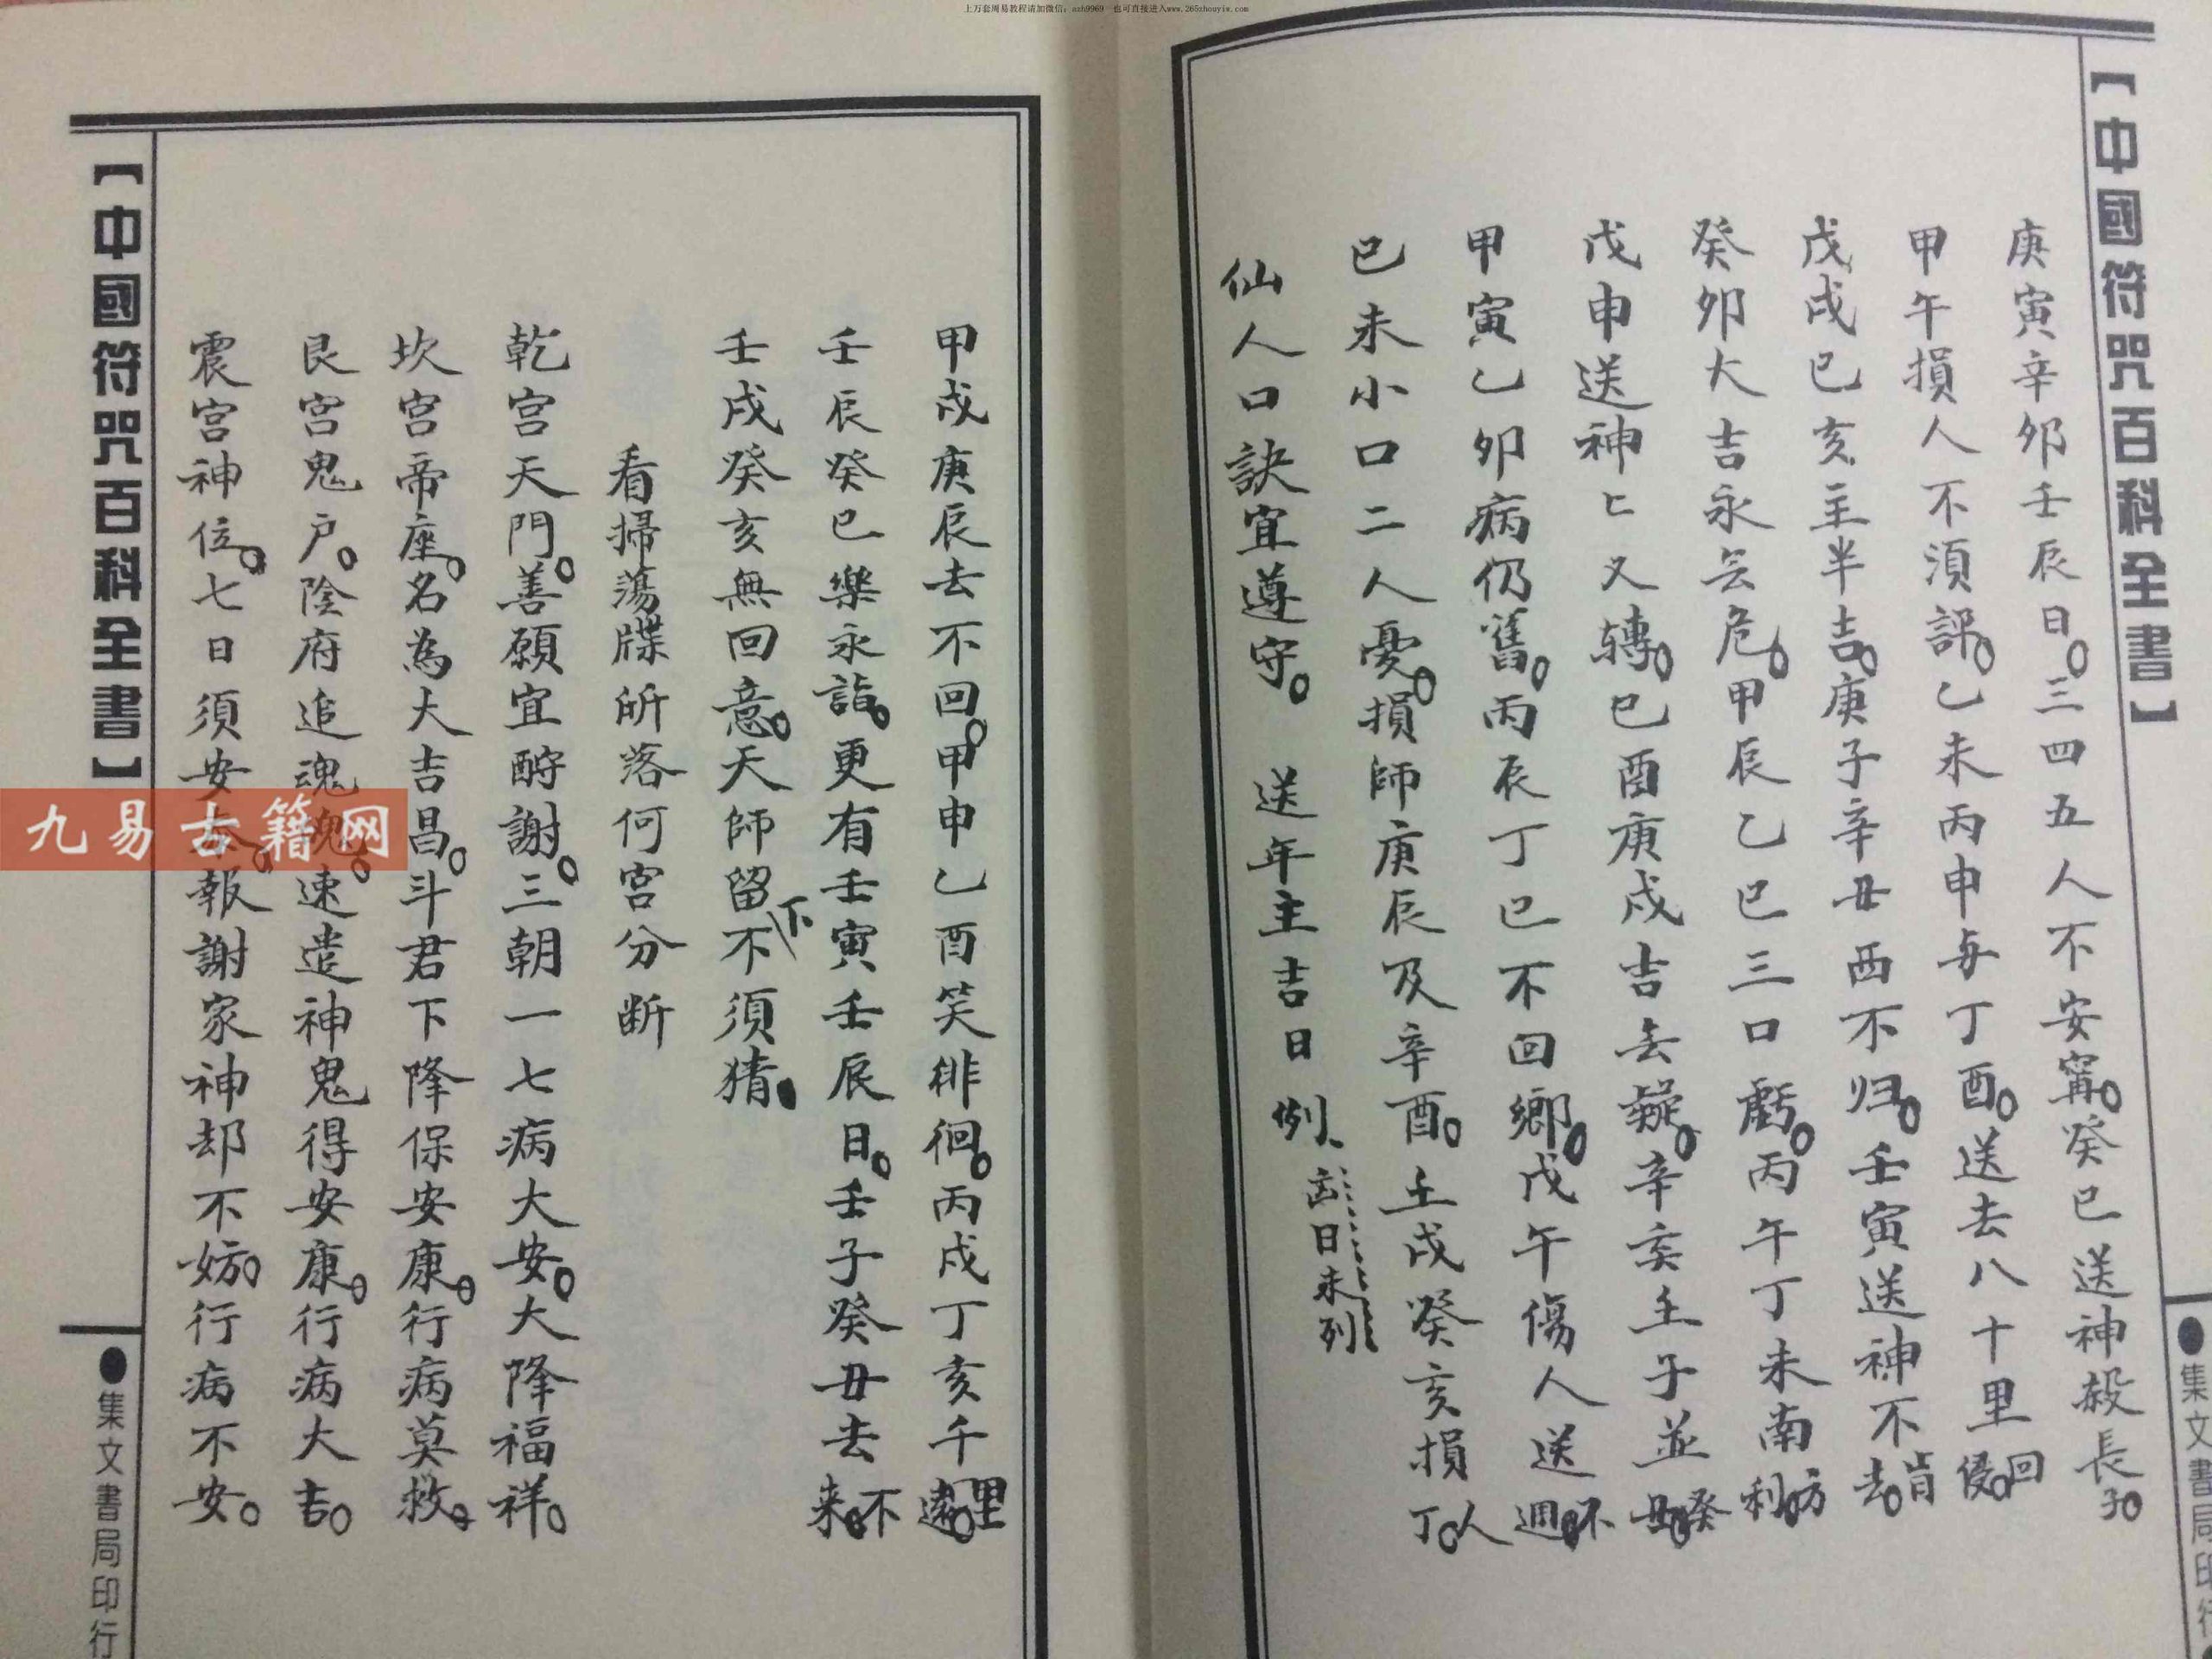 上万套周易教程请加微信：azh9969 也可直接进入www.265zhouyiw.com
【中國符咒百科全書】
●集文書局印行
庚寅辛卯壬辰日。三四五人不安寗。癸巳送神殺長子。
甲午損人不須評。乙未丙申与丁酉。送去八十里回侵。
戊戌巳亥主半吉。庚子辛丑西不归。壬寅送神不肯去。
癸卯大吉永无危。甲辰乙巳三口虧。丙午丁未南方利。
戊申送神匕又轉。巳酉庚戌吉无疑。辛亥壬子並癸丑。
甲寅乙卯病仍舊。丙辰丁巳不回鄉。戊午傷人送不週。
巳未小口二人憂。損師庚辰及辛酉。壬戌癸亥損人丁。
仙人口訣宜遵守。 送年主吉日例、
日未列
甲戌庚辰去不回。甲申乙酉笑徘徊。丙戌丁亥千里遠。
壬辰癸巳樂永詣。更有壬寅壬辰日。壬子癸丑去不来。
壬戌癸亥無回意。天師留下不須猜。
看掃蕩牒所落何宮分断
乾宮天門。善願宜酧謝。三朝一七病大安。大降福祥。
坎宮帝座。名為大吉昌。斗君下降保安康。行病莫救。
艮宮鬼户。陰府追魂魄。速遣神鬼得安康。行病大吉。
震宮神位。七日須安。報謝家神却不妨。行病不安。
【中國符咒百科全書】
●集文書局印行
九易古籍网